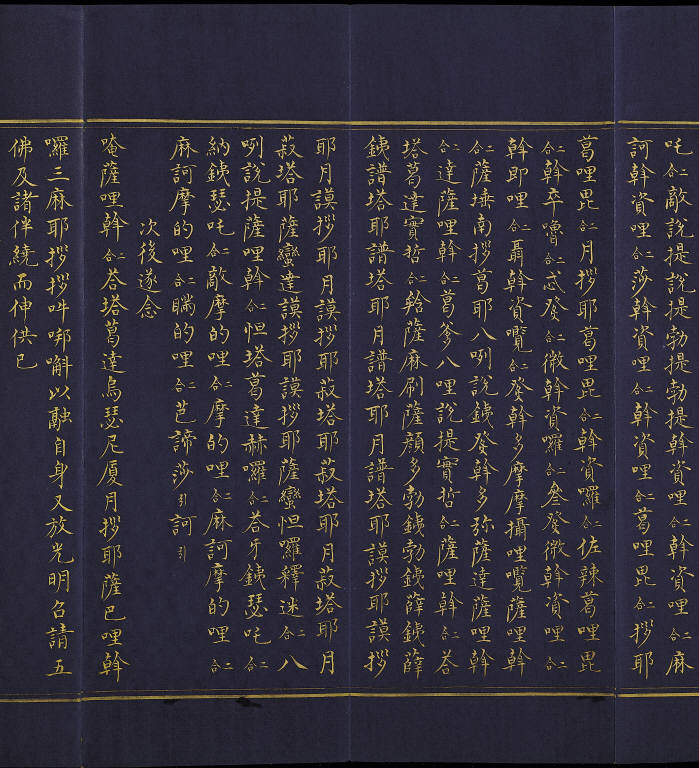 吒二合敵說提說提勃提勃提斡資哩二合斡資哩二合麻
訶斡資哩二合莎斡資哩二合斡資哩二合葛哩毘二合拶耶
葛哩毘二合月拶耶葛哩毘二合斡資囉二合佐辣葛哩毘
二合斡卒嚕二合忒癹二合微斡資囉二合叁癹微斡資哩二合
斡即哩二合聶斡資囕二合癹斡多摩摩攝哩囕薩哩斡
二合薩埵南拶葛耶八咧說銕癹斡多弥薩達薩哩斡
二合達薩哩斡二合葛爹八哩說提實哲二合薩哩斡二合荅
塔葛達實哲二合辂薩麻刷薩顔多勃銕勃銕薛銕薛
銕譜塔耶譜塔耶月譜塔耶月譜塔耶謨拶耶謨拶
耶月謨拶耶月謨拶耶菽塔耶菽塔耶月菽塔耶月
菽塔耶薩蠻達謨拶耶謨拶耶薩蠻怛囉釋迷二合八
咧說提薩哩斡二合怛塔葛達赫囉二合荅牙銕瑟吒二合
納銕瑟吒二合敵摩的哩二合摩的哩二合麻訶摩的哩二合
麻訶摩的哩二合瞞的哩二合芭諦莎引訶引
次後遂念
唵薩哩斡二合荅塔葛達烏瑟尼厦月拶耶薩巴哩斡
囉三麻耶拶拶吽㖫斛以融自身又放光明召請五
佛及諸伴繞而伸供已